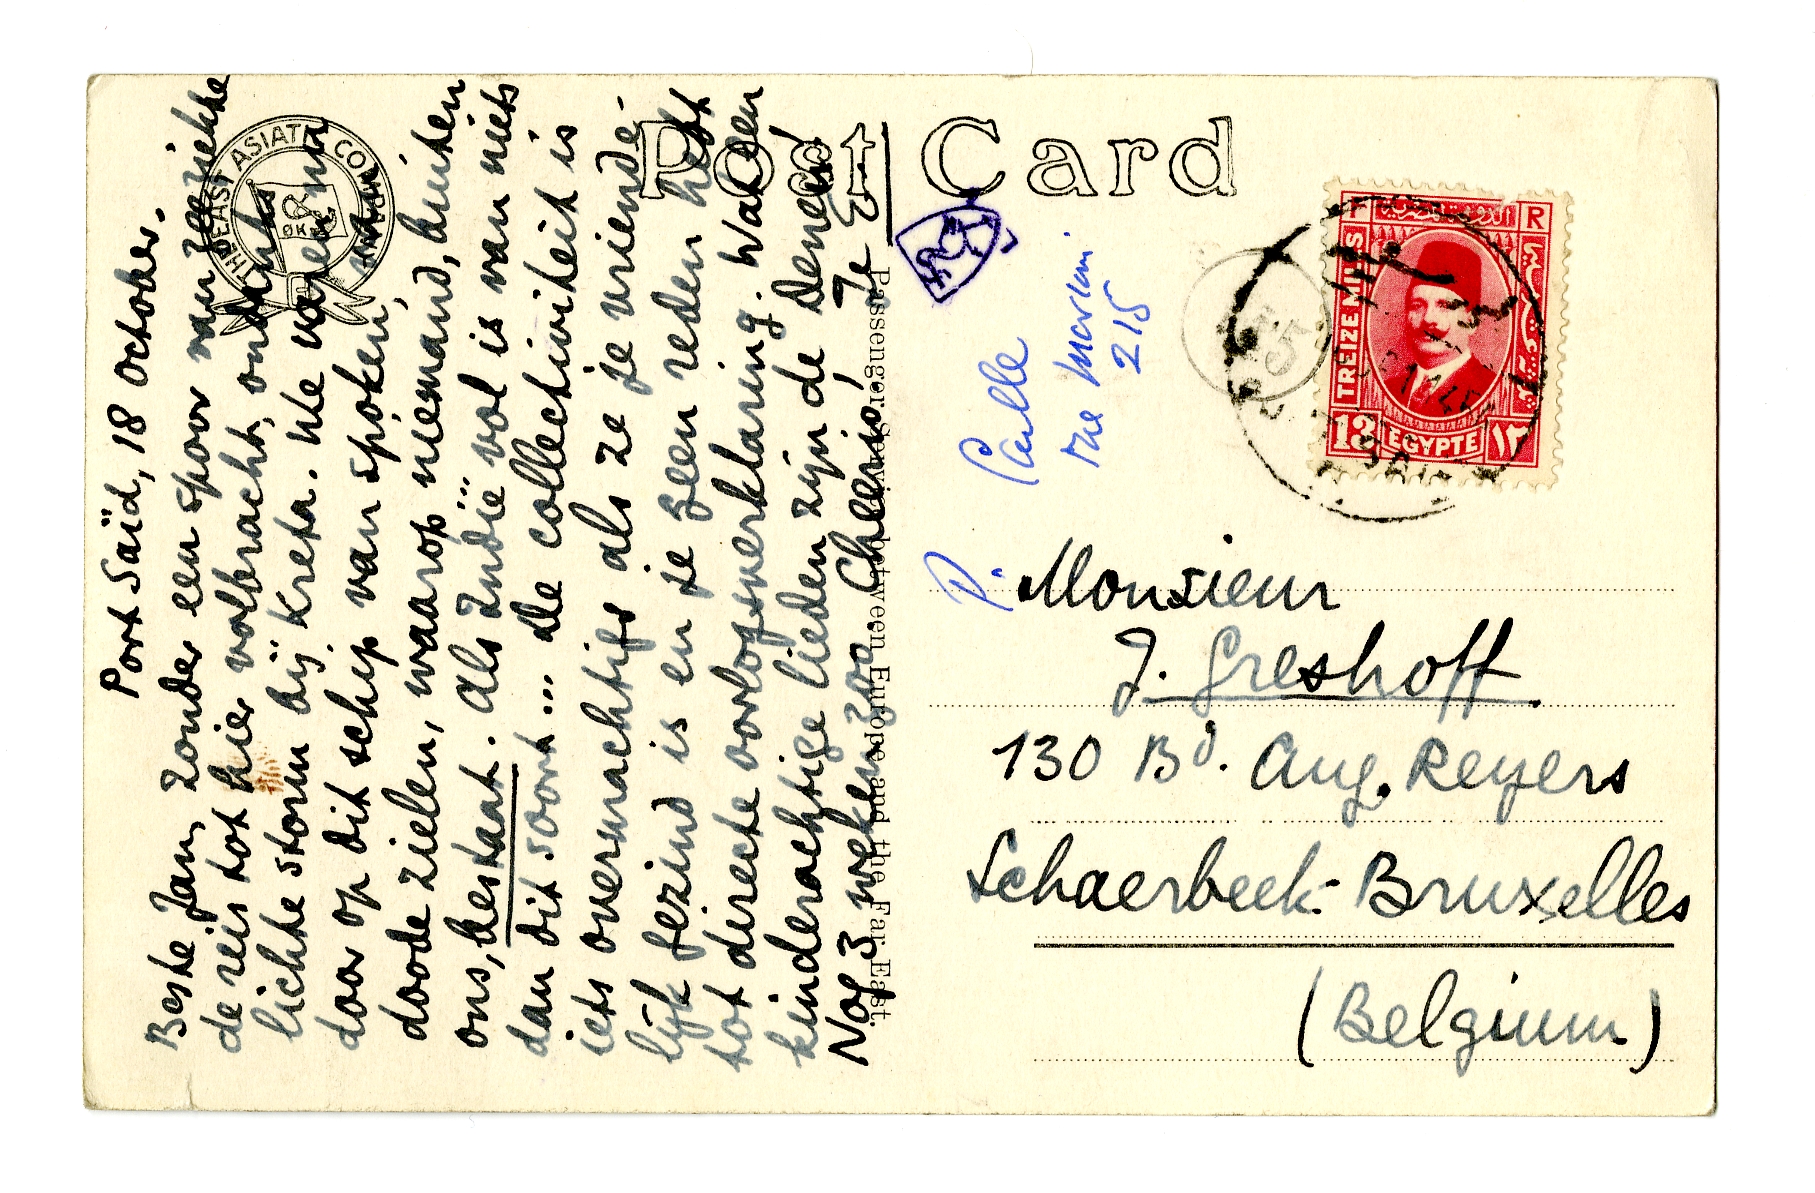 Post Card
THE EAST ASIATIC COMPANY
ØK
Passenger Service between Europe and the Far East.
Port Saïd, 18 October.
Beste Jan, zonder een spoor van zeeziekte
de reis tot hier volbracht, ondanks
lichte storm bij Kreta. We varen nu
door op dit schip van spoken,
doode zielen, waarop niemand, buiten
ons, bestaat. Als Indië vol is van niets
dan dit soort... De collectiviteit is
iets overmachtigs als ze je vriende-
lijk gezind is en je geen reden hebt
tot directe oorlogsverklaring. Wat een
kinderachtige lieden zijn de Denen!
Nog 3 weken zoo. Cheerio, Je E
rue Marian
215
P.
Monsieur
J. Greshoff
130 Bd. Aug. Reyers
Schaerbeek-Bruxelles
(Belgium)
F R
TREIZE MILLS
13 EGYPTE ١٣
55